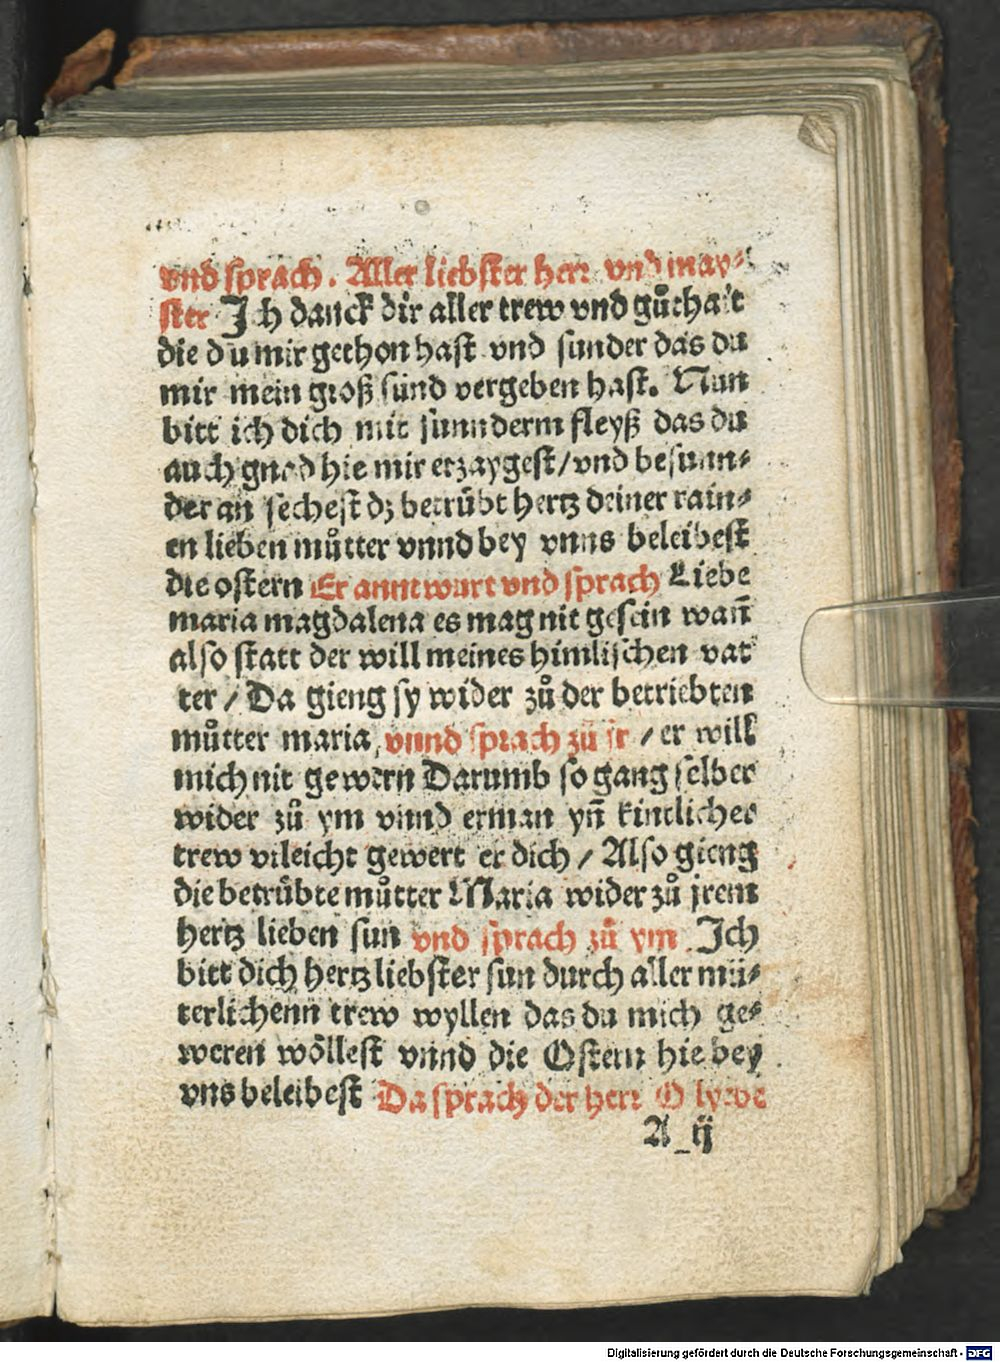 vnd sprach. Aller liebster herr vnd may⸗
ster Ich danck dir aller trew vnd gůthait
die du mir gethon hast vnd sunder das du
mir mein groß sünd vergeben hast. Nun
bitt ich dich mit sunnderm fleyß das du
auch gnad hie mir erzaygest/vnd besunn⸗
der an sechest dz betrübt hertz deiner rain⸗
en lieben můtter vnnd bey vnns beleibest
die ostern Er anntwurt vnd sprach Liebe
maria magdalena es mag nit gesein wañ
also statt der will meines himlischen vat
ter / Da gieng sy wider zů der betriebten
můtter maria, vnnd sprach zů ir / er will
mich nit gewern Darumb so gang selber
wider zů ym vnnd erman yñ kintlicher
trew vileicht gewert er dich / Also gieng
die betrübte můtter Maria wider zů jrem
hertz lieben sun vnd sprach zů ym. Ich
bitt dich hertz liebster sun durch aller mü⸗
terlichenn trew wyllen das du mich ge⸗
weren wöllest vnnd die Ostern hie bey
vns beleibest Da sprach der herr O lyebe
A ij
Digitalisierung gefördert durch die Deutsche Forschungsgemeinschaft - DFG